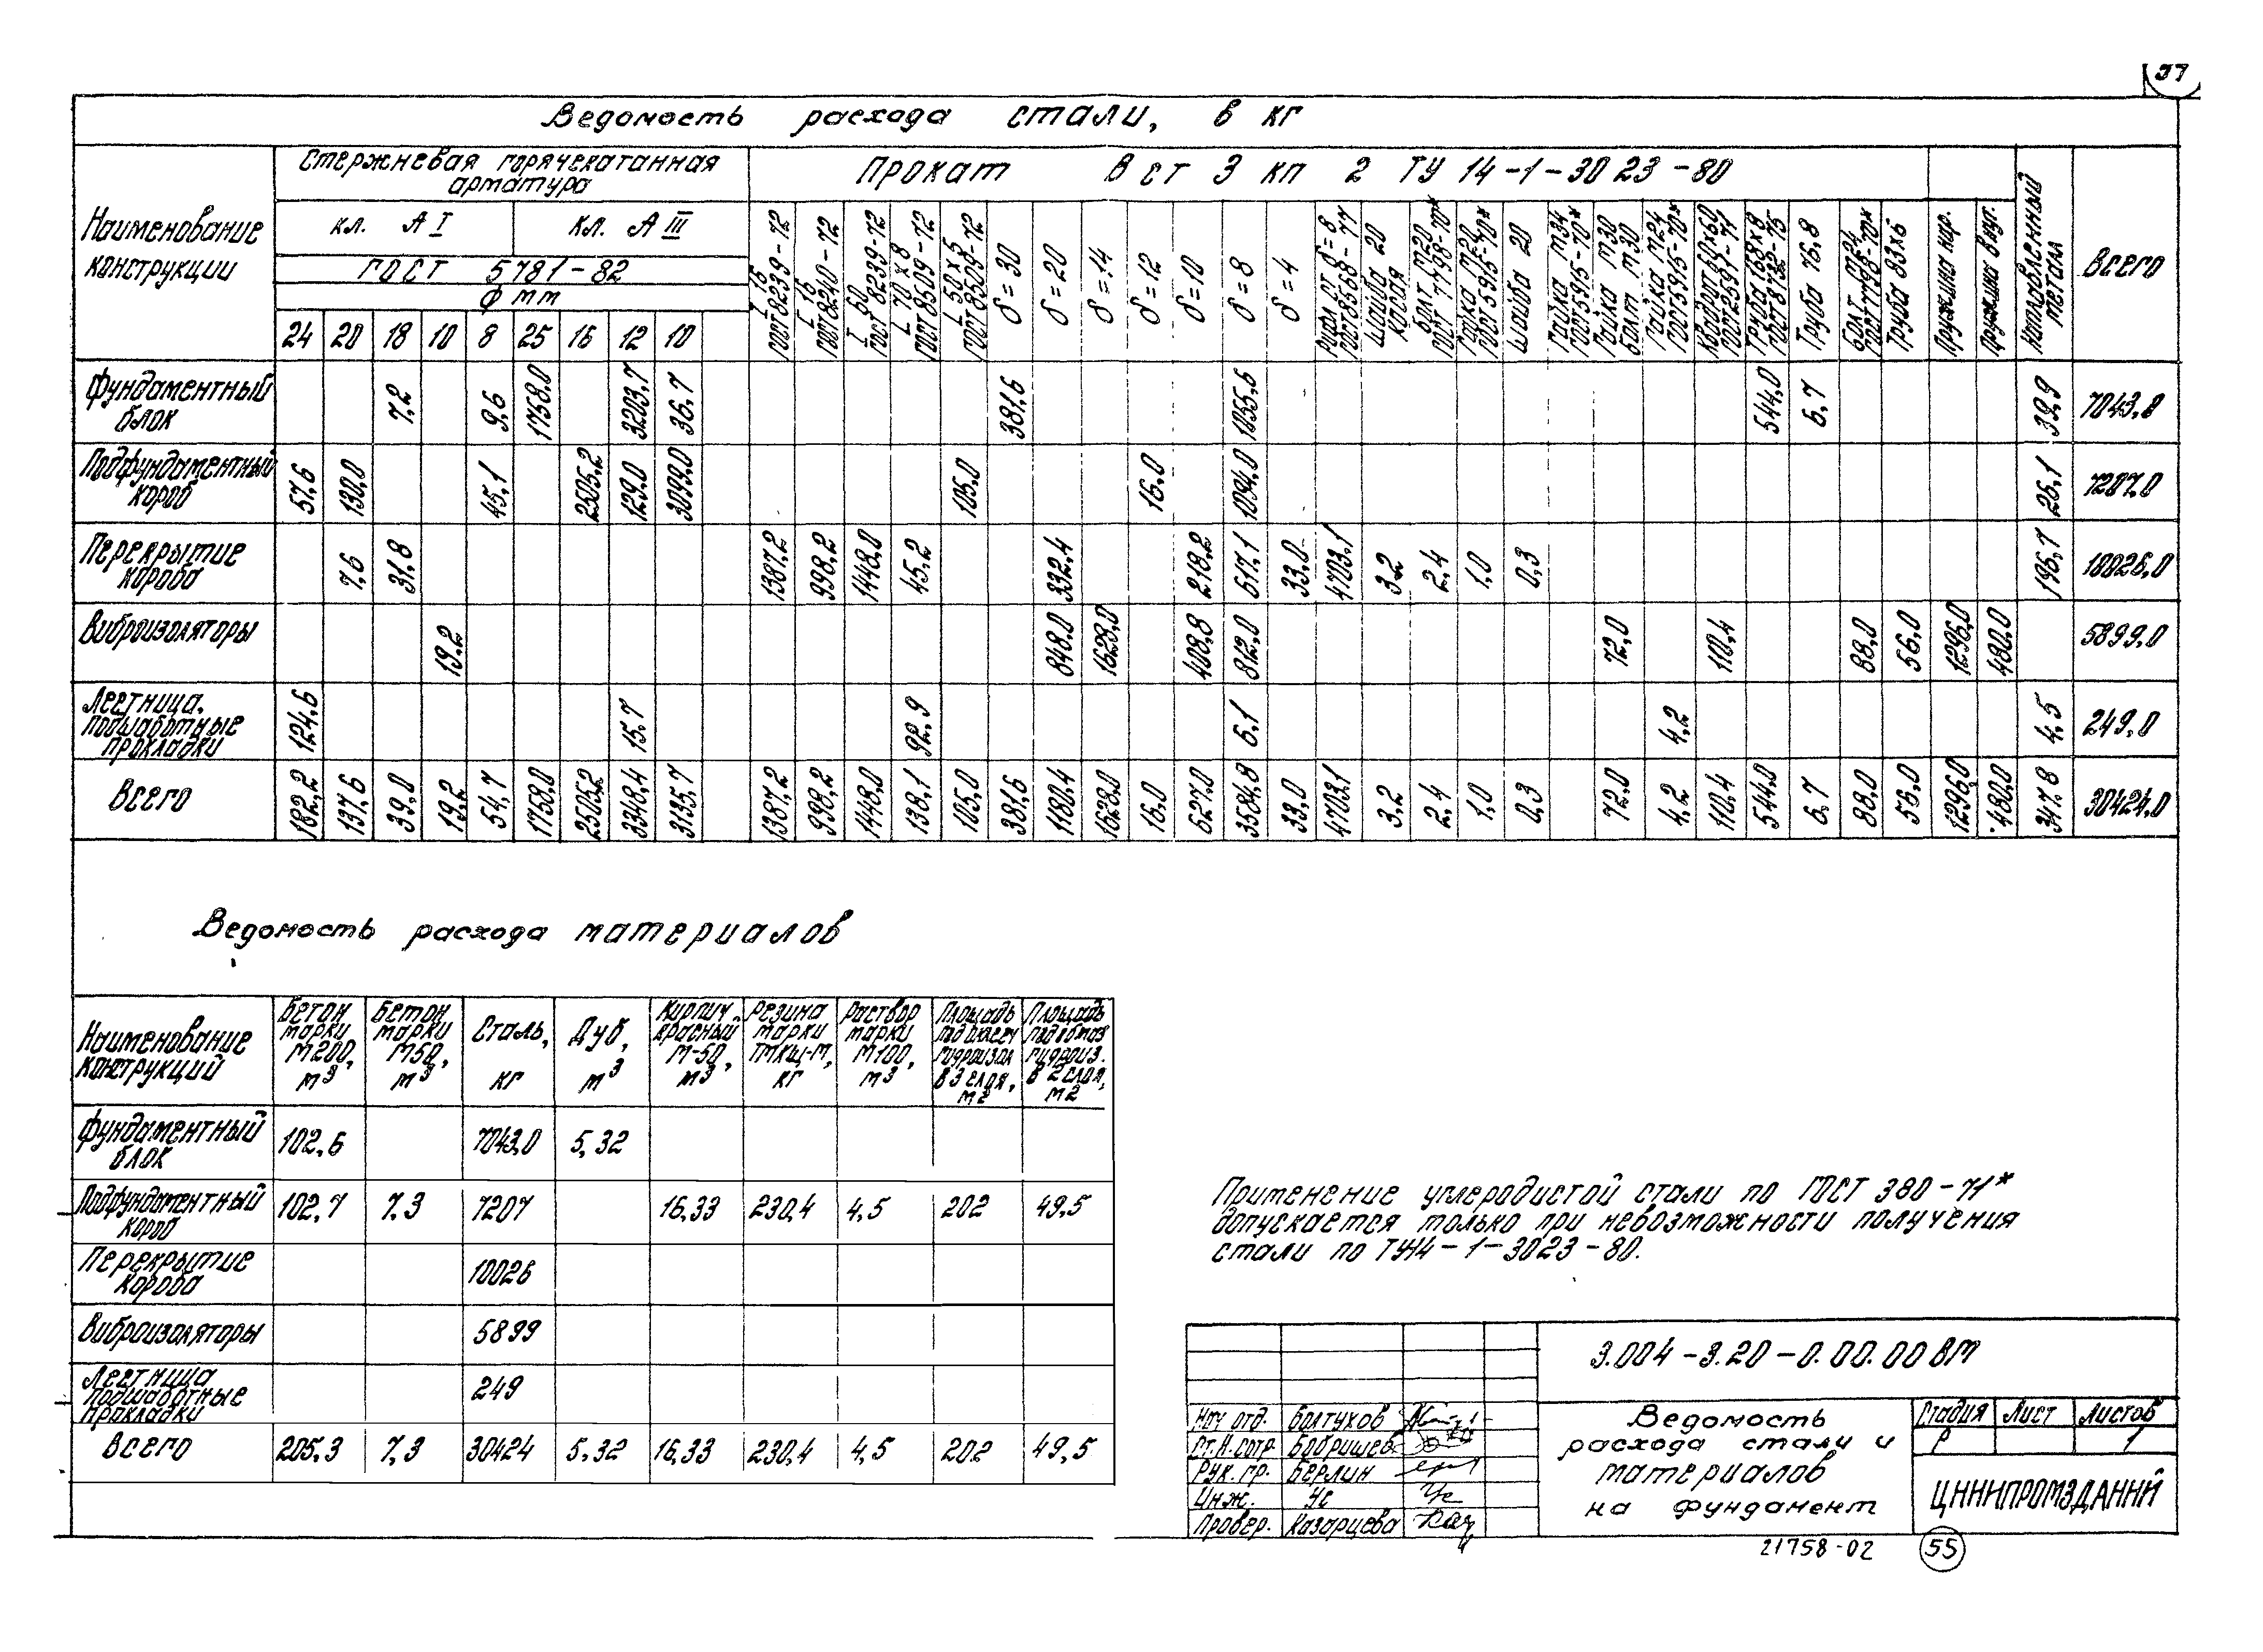 57
Ведомость расхода стали, в кг
Наименование конструкции
Стержневая горячекатанная арматура
Прокат В ст 3 кп 2 ТУ 14-1-3023-80
Наплавленный металл
Всего
кл. А I
Кл. А III
ГОСТ 5781-82
Ф мм
24 20 18 10 8 25 16 12 10
I 16 ГОСТ 8239-72
[ 16 ГОСТ 8240-72
I 60 ГОСТ 8239-72
L 70×8 ГОСТ 8509-72
L 50×5 ГОСТ 8509-72
δ=30
δ=20
δ=14
δ=12
δ=10
δ=8
δ=4
Рифл. ст δ=8 ГОСТ 8568-77
Шайба 20 косая
Болт м20 ГОСТ 7798-70*
Гайка м20 ГОСТ 5915-70*
Шайба 20
Гайка м34 ГОСТ 5915-70*
Гайка м30 болт м30
Гайка м24 ГОСТ 5915-70*
Квадрат 60×60 ГОСТ 2591-71
Труба 168×8 ГОСТ 8732-75
Труба 76.8
Болт м24 ГОСТ 7798-70*
Труба 83×6
Пружина нар.
Пружина внут.
Фундаментный блок 7,2 9,6 1758.0 3203,7 36,7 381,6 1055,6 544,0 6,7 39,9 7043,0
Подфундаментный короб 57,6 130,0 45,1 2505,2 129.0 3099.0 105.0 16.0 1094.0 26,1 7207.0
Перекрытие короба 7,6 31,8 1387,2 998,2 1448,0 45,2 332,4 218,2 617,1 33,0 4703,1 3,2 2,4 1,0 0,3 196,7 10026,0
Виброизоляторы 19,2 848.0 1628,0 408,8 812,0 72,0 110,4 88,0 56,0 1296,0 480,0 5899,0
Лестница. подшаботные прокладки 124,6 15,7 92,9 6,1 4,2 4,5 249,0
Всего 182,2 137,6 39,0 19,2 54,7 1758,0 2505,2 3348,4 3135,7 1387,2 998,2 1448,0 138,1 105,0 381,6 1180,4 1628,0 16,0 627,0 3584,8 33,0 4703,1 3,2 2,4 1,0 0,3 72,0 4,2 110,4 544,0 6,7 88,0 56,0 1296,0 480,0 347,8 30424,0
Ведомость расхода материалов
Наименование конструкций
Бетон марки М200, м3
Бетон марки М50, м3
Сталь, кг
Дуб, м3
Кирпич красный М-50, м3
Резина марки ТМКЩ-М, кг
Раствор марки М100, м3
Площадь гидроизол в 3 слоя, м2
Площадь гидроиз. в 2 слоя, м2
Фундаментный блок 102,6 7043,0 5,32
Подфундаментный короб 102,7 7,3 7207 16,33 230,4 4,5 202 49,5
Перекрытие короба 10026
Виброизоляторы 5899
Лестница подшаботные прокладки 249
Всего 205,3 7,3 30424 5,32 16,33 230,4 4,5 202 49,5
Применение углеродистой стали по ГОСТ 380-71*
допускается только при невозможности получения
стали по ТУ14-1-3023-80.
3.004-3.20-0.00.00 ВМ
Нач отд. Болтухов
Ст.н.сотр. Бобришев
Рук. гр. Берлин
Инж. Ус
Провер. Казарцева
Ведомость
расхода стали и
материалов
на фундамент
Стадия Лист Листов
Р 1
ЦНИИПРОМЗДАНИЙ
21758-02 55